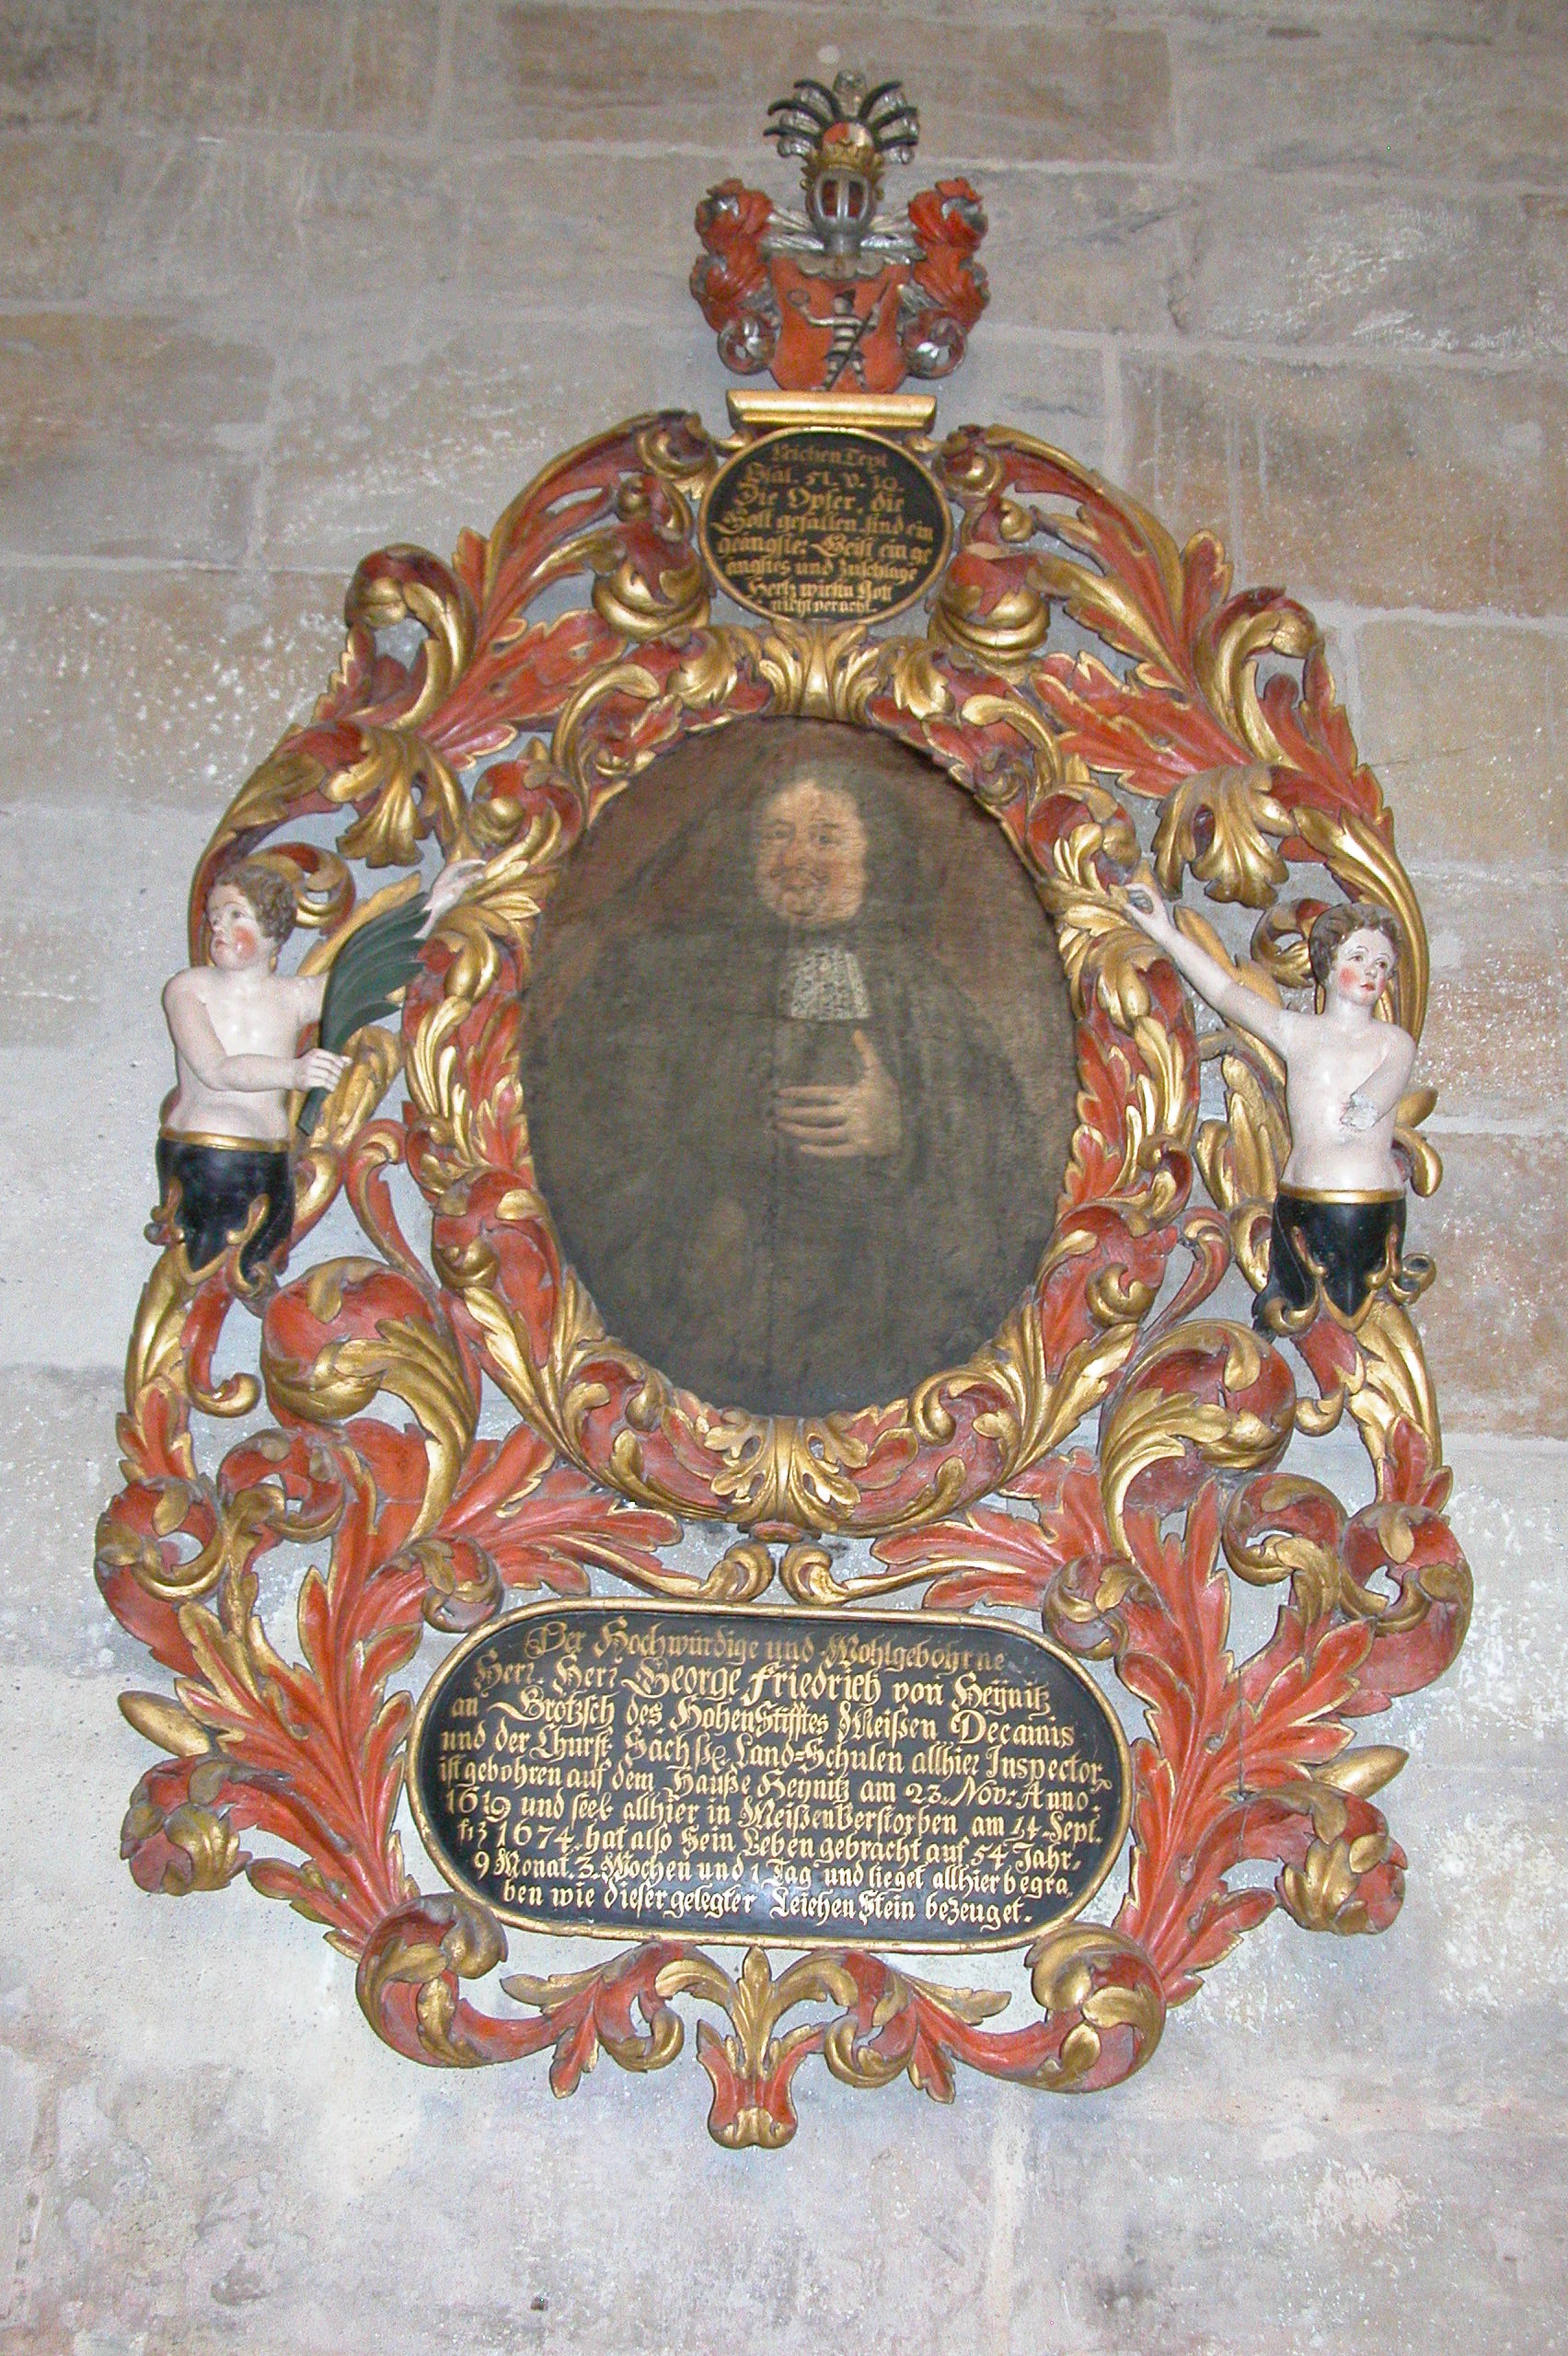 Leichen Text
Psal. 51. v. 19.
Die Opfer, die
Gott gefallen sind ein
geängster Geist ein ge
ängstes und zuschlage
Hertz wirstu Gott
nicht veracht.
Der Hochwürdige und Wohlgebohrne
Herr, Herr George Friedrich von Heÿnitz
an Brötzsch des HohenStifftes Meißen Decanus
und der Churf. Sächß. Land=Schulen allhier Inspector,
ist gebohren auf dem Hauße Heynitz am 23. Nov: Anno.
1619 und seel. allhier in Meißen Verstorben am 14. Sept.
1674. hat also Sein Leben gebracht auf 54. Jahr.
9 Monat. 3. Wochen und 1 Tag und lieget allhier begra=
ben wie dieser gelegter Leichen Stein bezeuget.